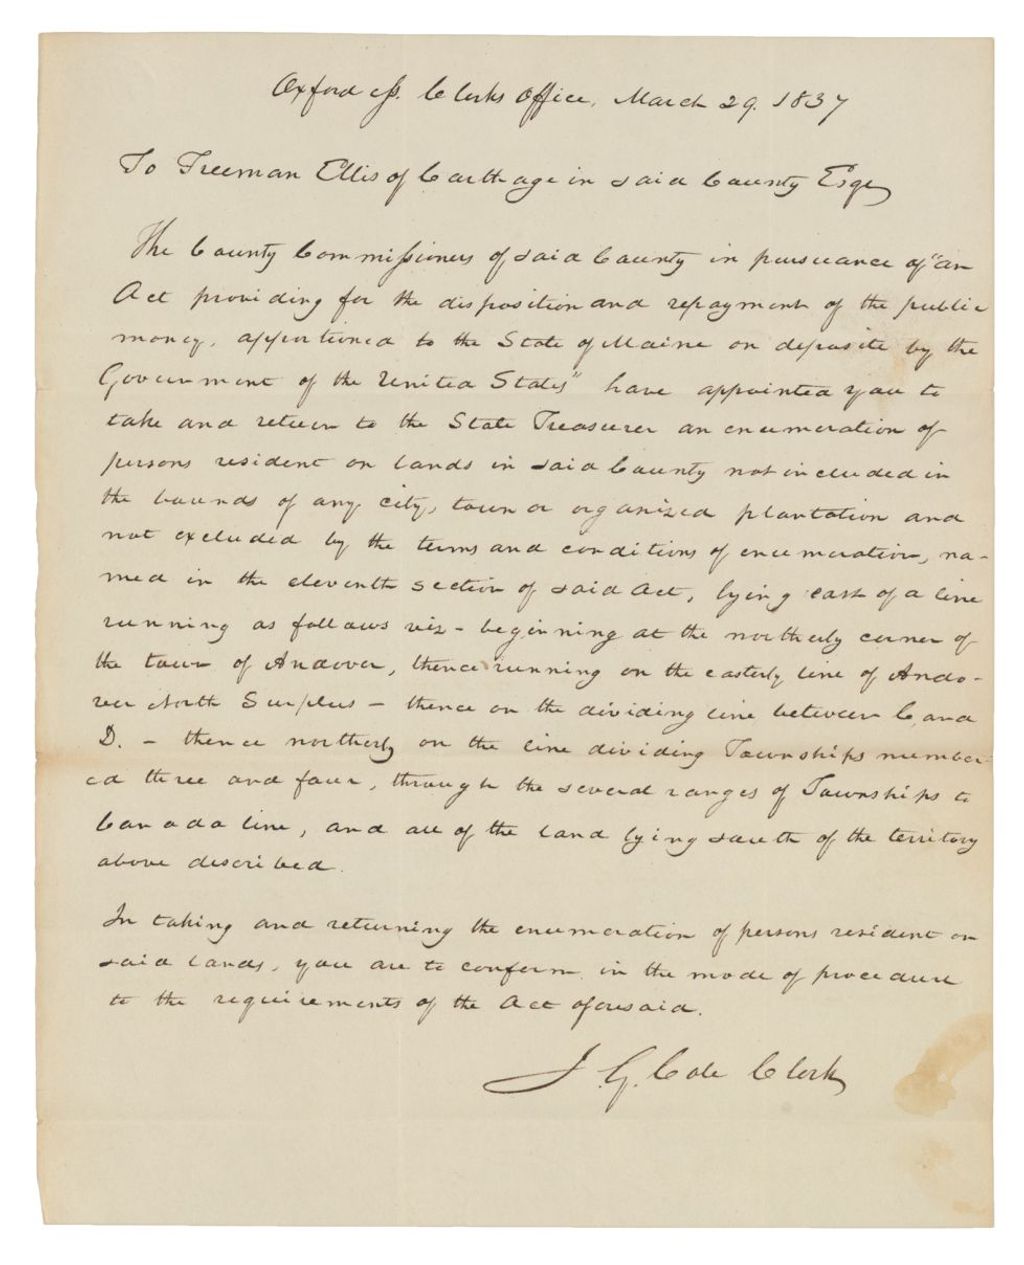 Oxford ss. Clerks Office, March 29. 1837
To Freeman Ellis of Carthage in said County Esqr
The County Commissioners of said County in pursuance of "an
Act providing for the disposition and repayment of the public
money, apportioned to the State of Maine on deposite by the
Government of the United States" have appointed you to
take and return to the State Treasurer an enumeration of
persons resident on lands in said County not included in
the bounds of any city, town or organized plantation and
not excluded by the terms and conditions of enumeration, na-
med in the eleventh section of said Act, lying east of a line
running as follows viz - beginning at the northerly corner of
the town of Andover, thence running on the easterly line of Ando-
ver North Surplus - thence on the dividing line between C and
D. - thence northerly on the line dividing Townships number-
ed three and four, through the several ranges of Townships to
Canada line, and all of the land lying south of the territory
above described.
In taking and returning the enumeration of persons resident on
said lands, you are to conform in the mode of procedure
to the requirements of the Act aforesaid.
J. G. Cole Clerk